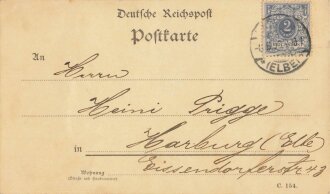 Deutsche Reichspost
Postkarte
An
Herrn
Heini Prigge
in Harburg (Elbe)
Eissendorferstr 43
Wohnung
(Straße und Hausnummer)
C. 154.
2
(ELBE)